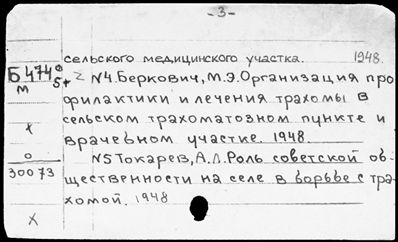 -3-
сельского медицинского участка. 1948.
Б474
м 5+ 2 N4.Беркович, М.Э.Организация про
филактики и лечения трахомы в
х сельском трахоматозном пункте и
врачебном участке. 1948.
о N5 Токарев, А.Л.Роль советской об-
30073
щественности на селе в борьбе с тра-
хомой. 1948
х